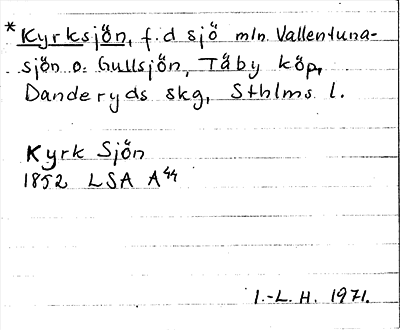 *Kyrksjön, f.d sjö mln. Vallentuna-
sjön o. Gullsjön, Täby köp,
Danderyds skg, Sthlms l.
Kyrk Sjön
1852 LSA A44
I.-L. H. 1971.